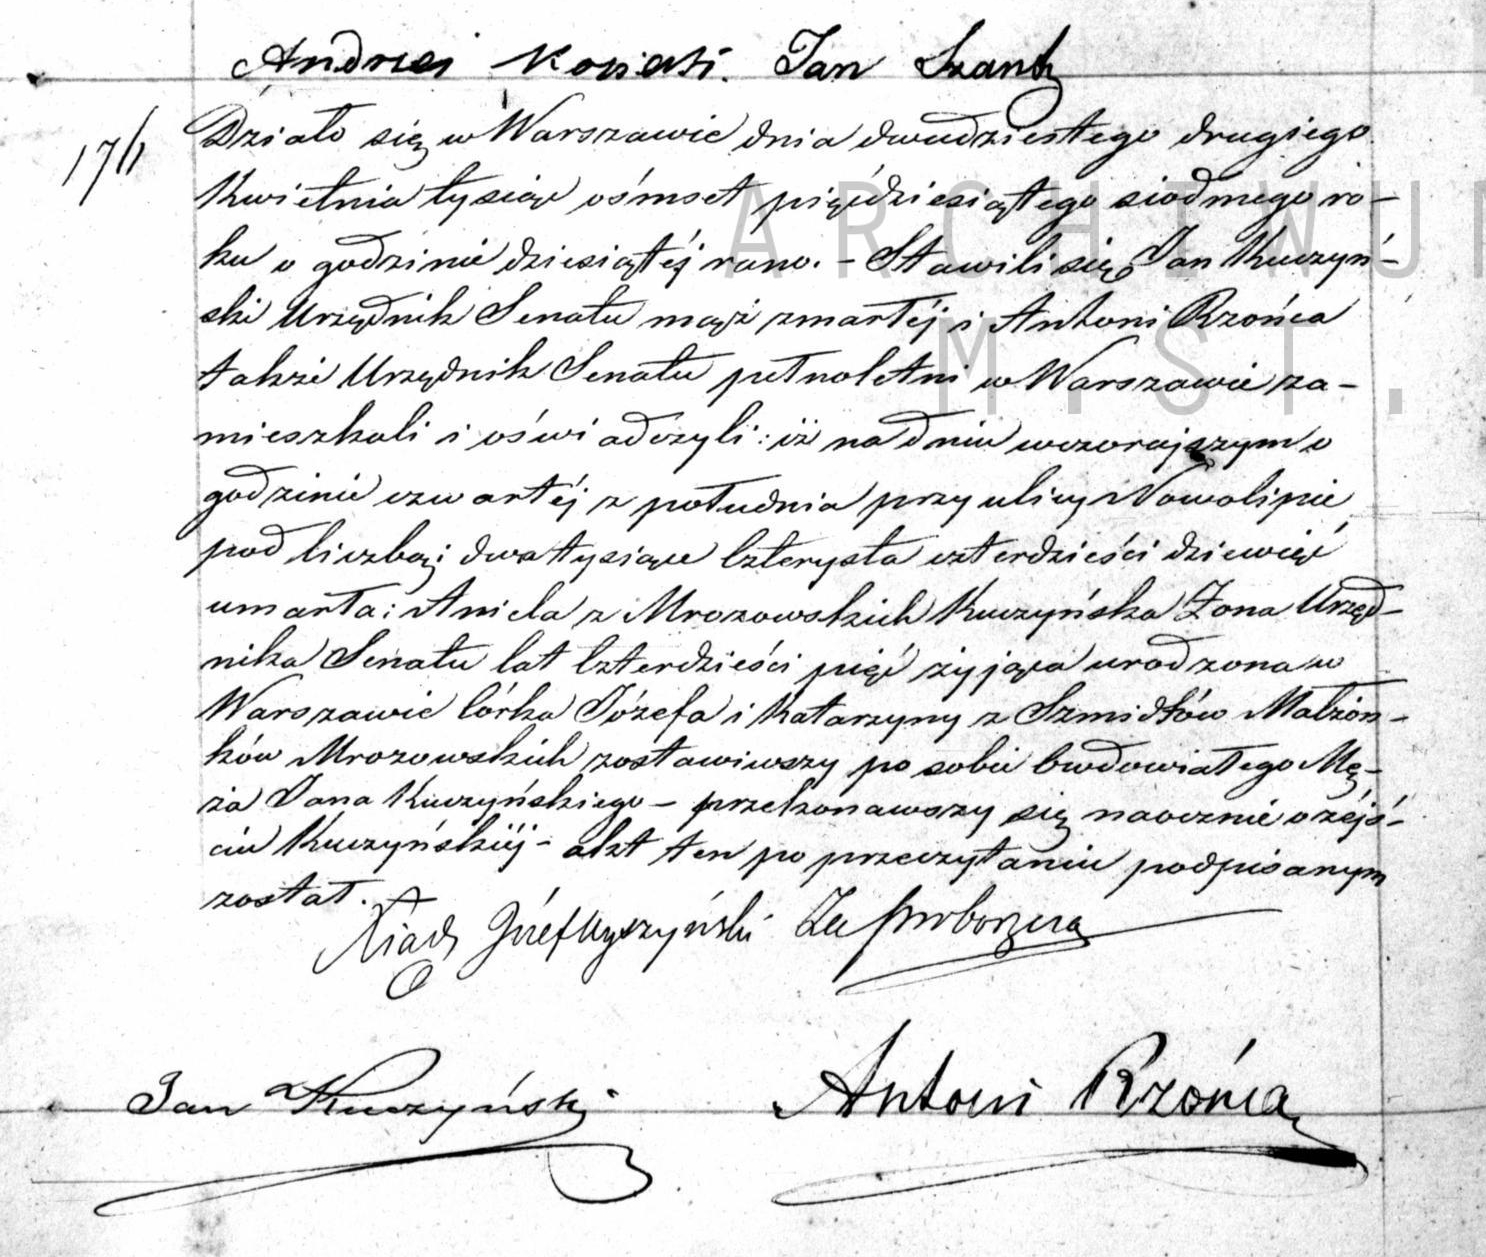 Andrzej Jan
176
Działo się w Warszawie dnia dwudziestego drugiego
Kwietnia tysiąc ośmset pięćdziesiątego siodmego ro-
ku o godzinie dziesiątéj rano. - Stawili się Jan Kuczyń-
ski Urzędnik Senatu mąż zmartéj i Antoni Rzońca
także Urzędnik Senatu pełnoletni w Warszawie za-
mieszkali i oświadczyli: iż na dniu wczorajszym o
godzinie czwartéj z południa przy ulicy Nowolipie
pod liczbą dwatysiące Czterysta czterdzieści dziewięć
umarła: Aniela z Mrozowskich Kuczyńska Żona Urzęd-
nika Senatu lat Czterdzieści pięć żyjąca urodzona w
Warszawie Córka Józefa i Katarzyny z Szmidtów Małżon-
ków Mrozowskich zostawiwszy po sobie Owdowiałego Mę-
ża Jana Kuczyńskiego - przekonawszy się naocznie o zejś-
ciu Kuczyńskiéj - akt ten po przeczytaniu podpisanym
został.
Xiądz Józef Wyszyński Za proboszcza
Jan Kuczyński Antoni Rzońca
ARCHIWU
M.ST.